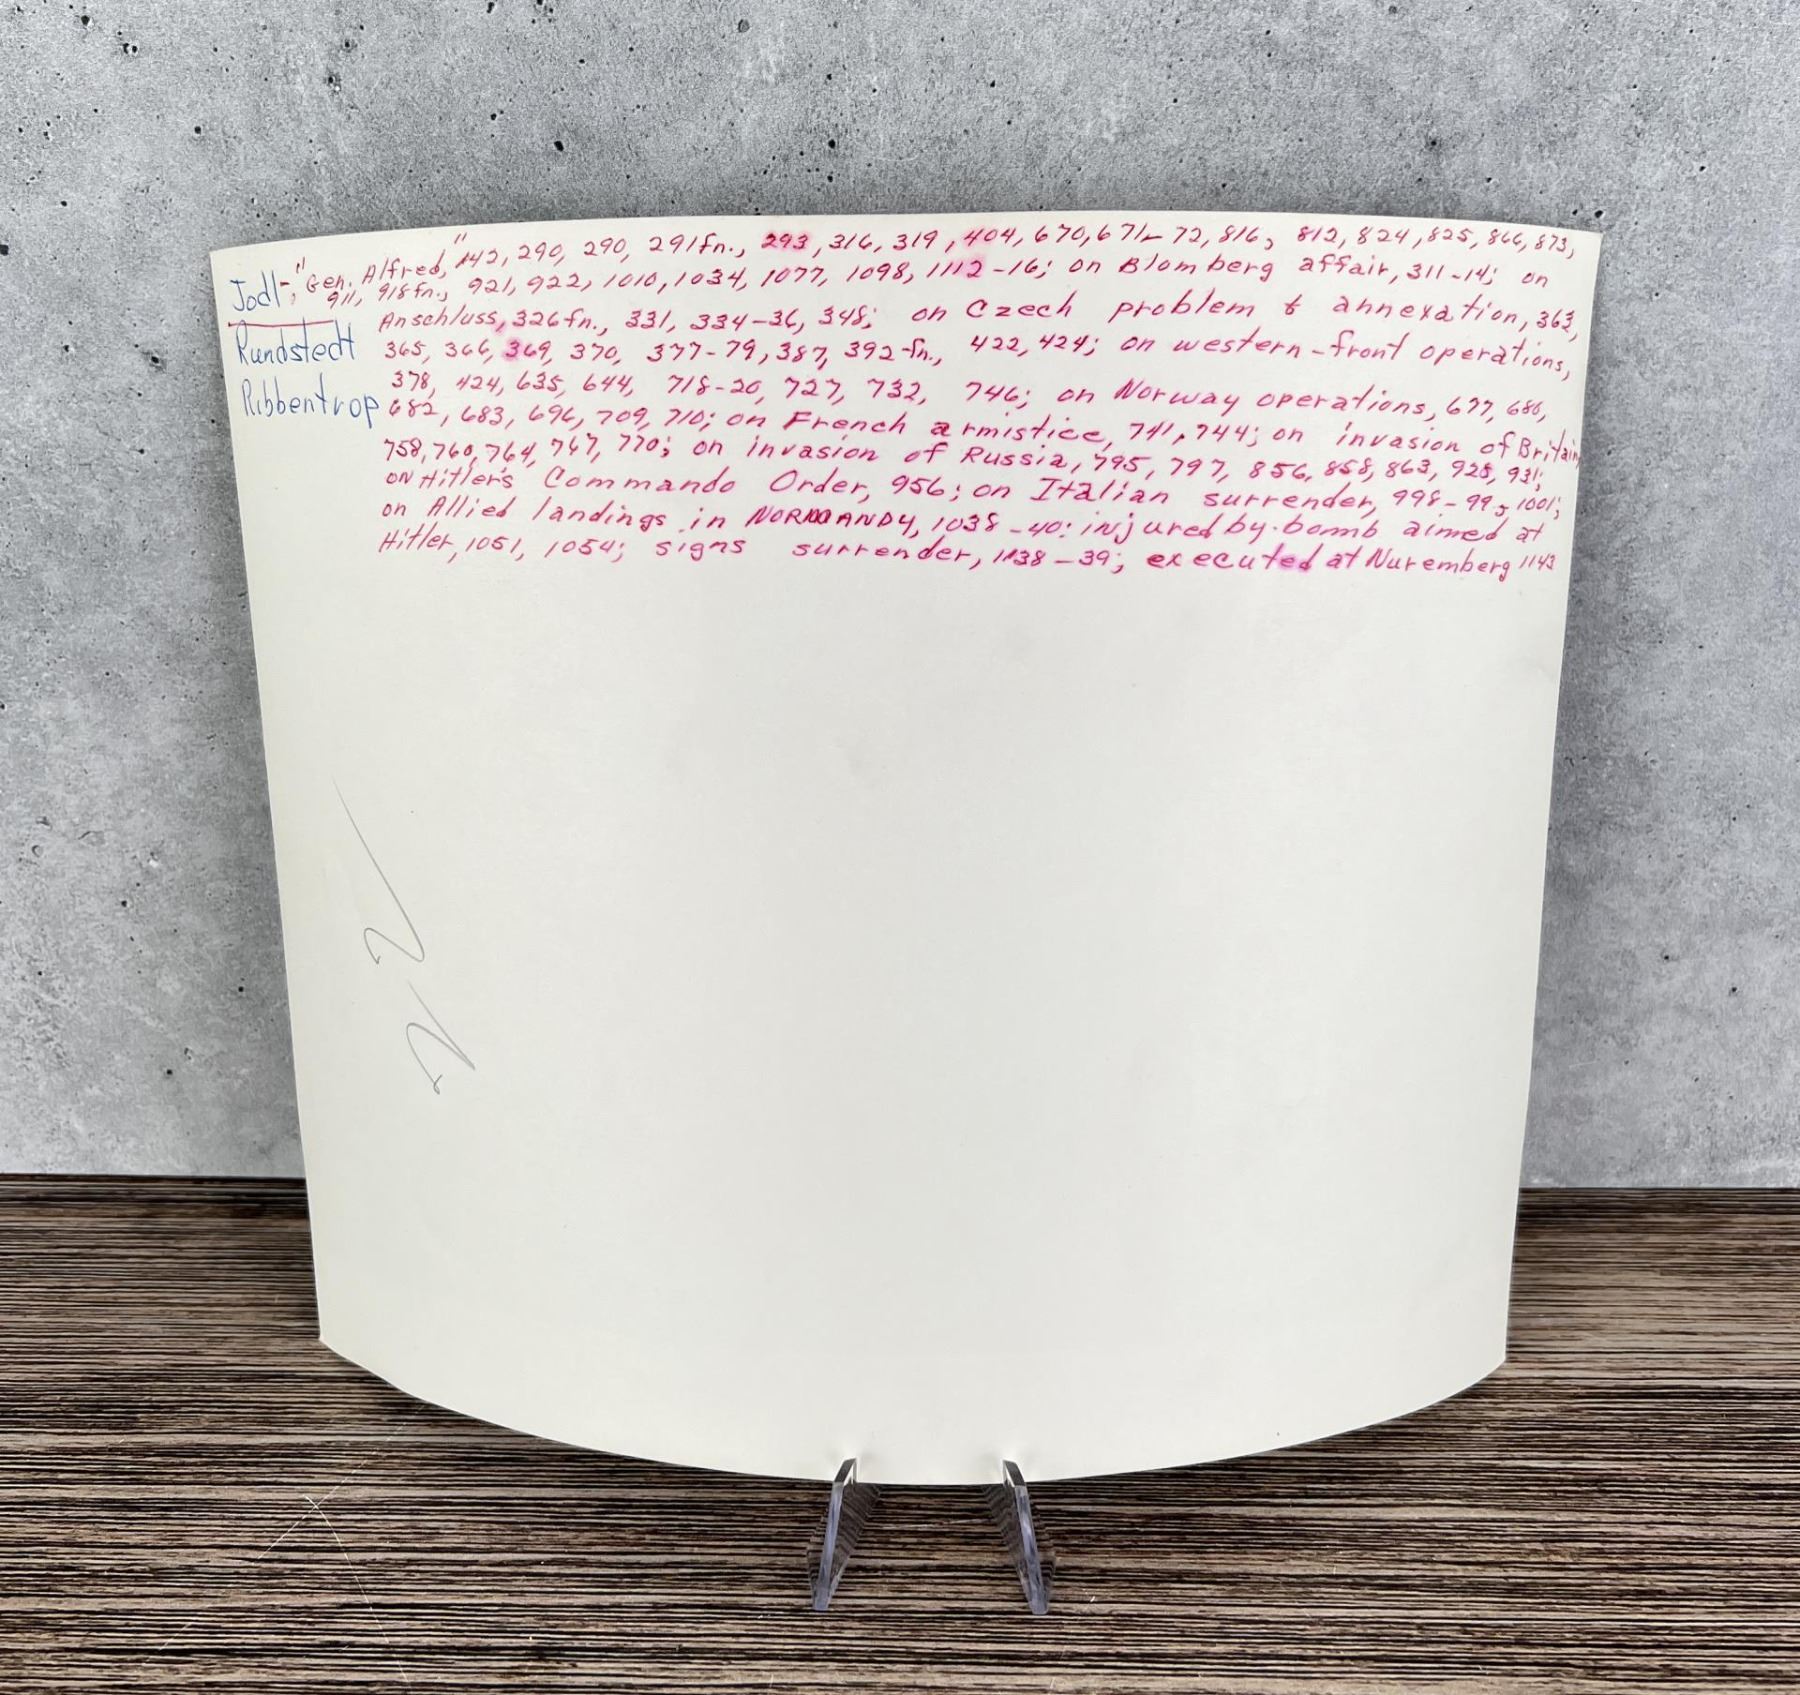 Jodl-, "Gen. Alfred," 142, 290, 290, 291fn., 293, 316, 319, 404, 670, 671-72, 816, 812, 824, 825, 866, 873,
911, 918fn., 921, 922, 1010, 1034, 1077, 1098, 1112-16; on Blomberg affair, 311-14; on
Anschluss, 326fn., 331, 334-36, 348; on Czech problem & annexation, 363,
Rundstedt 365, 366, 369, 370, 377-79, 387, 392-fn., 422, 424; on western-front operations,
Ribbentrop 378, 424, 635, 644, 718-20, 727, 732, 746; on Norway operations, 677, 680,
682, 683, 696, 709, 710; on French armistice, 741, 744; on invasion of Britain,
758, 760, 764, 767, 770; on invasion of Russia, 795, 797, 856, 858, 863, 925, 931;
on Hitler's Commando Order, 956; on Italian surrender, 998-99, 1001;
on Allied landings in NORMANDY, 1038-40: injured by bomb aimed at
Hitler, 1051, 1054; signs surrender, 1138-39; executed at Nuremberg 1143